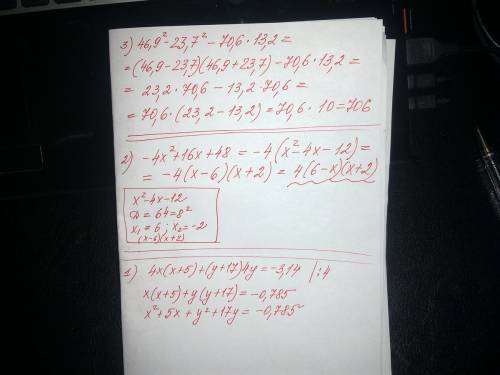 3) 46,9² - 23,7² - 70,6 · 13,2 =
= (46,9 - 23,7)(46,9 + 23,7) - 70,6 · 13,2 =
= 23,2 · 70,6 - 13,2 · 70,6 =
= 70,6 · (23,2 - 13,2) = 70,6 · 10 = 706
2) -4x² + 16x + 48 = -4(x² - 4x - 12) =
= -4(x - 6)(x + 2) = 4(6 - x)(x + 2)
x² - 4x - 12
D = 64 = 8²
x₁ = 6 ; x₂ = -2
(x - 6)(x + 2)
1) 4x(x + 5) + (y + 17)4y = -3,14 |:4
x(x + 5) + y(y + 17) = -0,785
x² + 5x + y² + 17y = -0,785